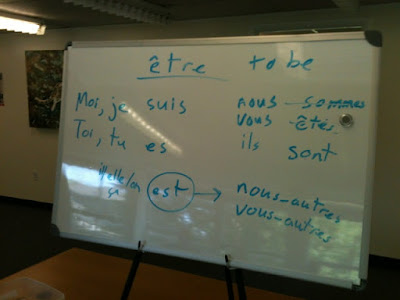 être to be
Moi, je suis
Toi, tu es
il/elle/on
ça
est →
nous sommes
vous êtes
ils sont
nous-autres
vous-autres